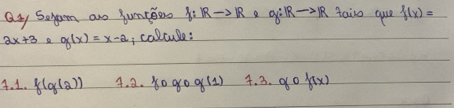 Q7/ Sejam as funções f: R → R e g: R → R tais que f(x) =
2x+3 e g(x) = x-2, calcule:
7.1. f(g(2)) 7.2. f o g o g(1) 7.3. g o f(x)